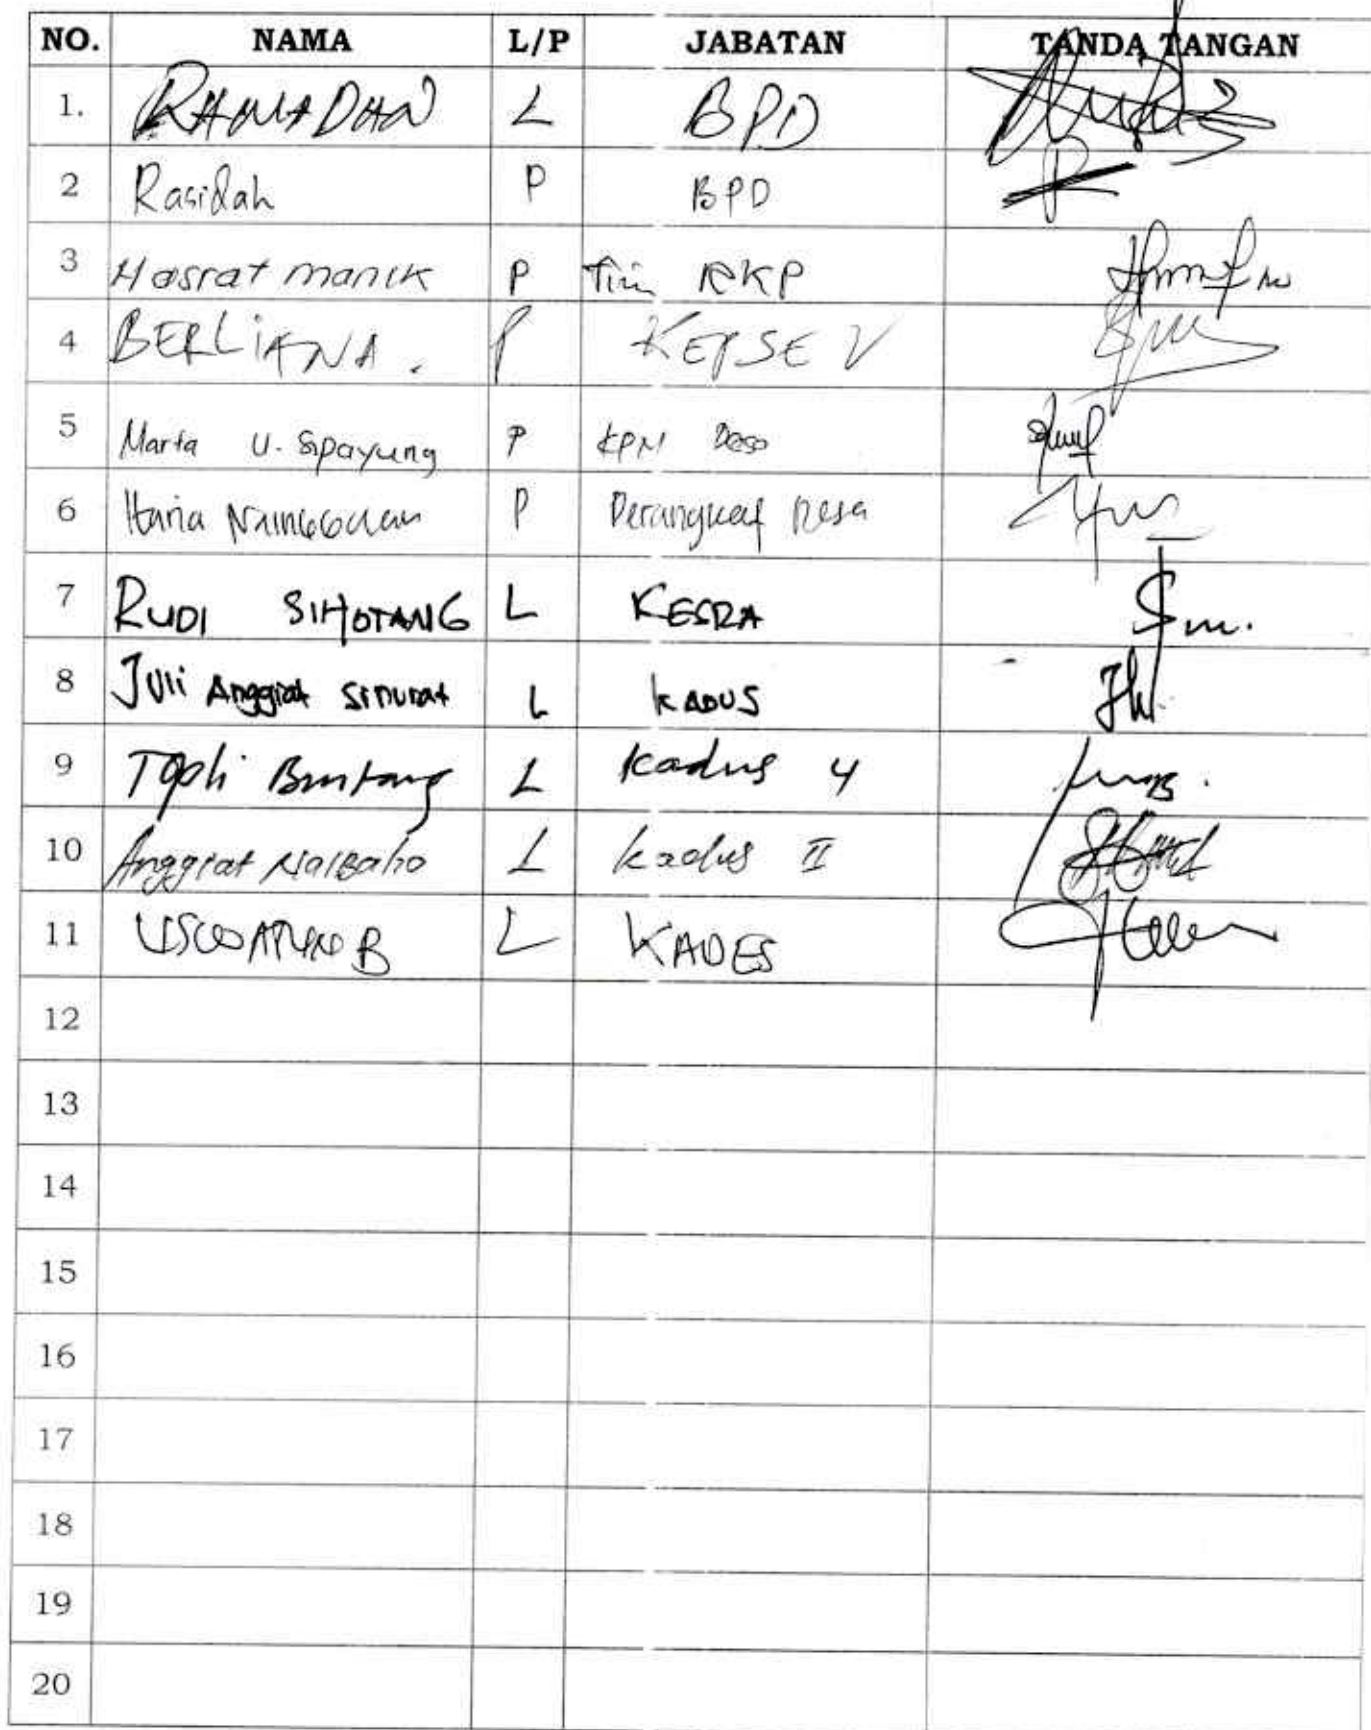 NO. NAMA L/P JABATAN TANDA TANGAN
1. RAMADHAN L BPD
2 Rasidah P BPD
3 Hasrat manik P Tim RKP
4 BERLIANA. P
5 Marta U. Sipayung P KPM Desa
6 Hana Nainggolan P Perangkat Desa
7 RUDI SIHOTANG L KESRA
8 JUli Anggiat Sinurat L KADUS
9 Bintang L Kadus 4
10 Anggiat Naibaho L Kadus II
11 L KADES
12
13
14
15
16
17
18
19
20